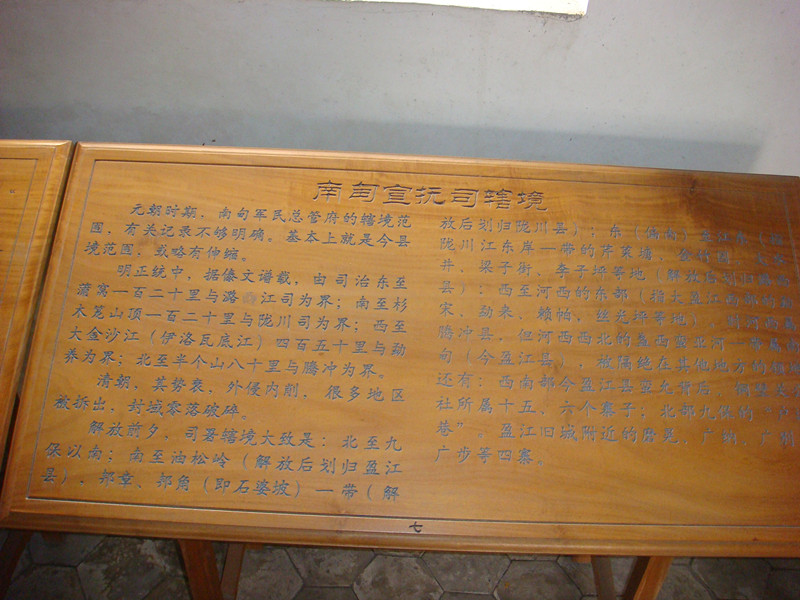 南甸宣抚司辖境
元朝时期，南甸军民总管府的辖境范
围，有关记录不够明确。基本上就是今县
境范围，或略有伸缩。
明正统中，据傣文谱载，由司治东至
蒲窝一百二十里与潞江司为界；南至杉
木笼山顶一百二十里与陇川司为界；西至
大金沙江（伊洛瓦底江）四百五十里与勐
养为界；北至半个山八十里与腾冲为界。
清朝，莫势衰，外侵内削，很多地区
被拆出，封域零落破碎。
解放前夕，司署辖境大致是：北至九
保以南；南至油松岭（解放后划归盈江
县），邦章、邦角（即石婆坡）一带（解
放后划归陇川县）；东（偏南）
陇川江东岸一带的芹菜塘，
井、梁子街、李子坪等地（解放后划归
县）；西至河西的东部（指大盈江南部的
宋、勐来、赖帕、丝光坪等地），
腾冲县，但河西西北的
甸（今盈江县），被隔绝在其他地方的
还有：西南部今盈江县
社所属十五、六个寨子；北部九保的
巷”。盈江旧城附近的
广步等四寨。
七